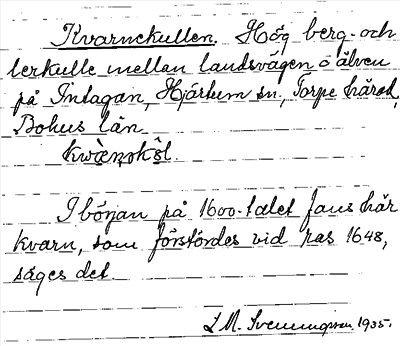 Kvarnekullen. Hög berg- och
lerkulle mellan landsvägen o älven
på Intagan, Hjärtum sn, Torpe härad,
Bohus län
kwàenəkʹəl.
I början på 1600-talet fans här
kvarn, som förstördes vid ras 1648,
säges det.
L M. Svenungsson 1935.